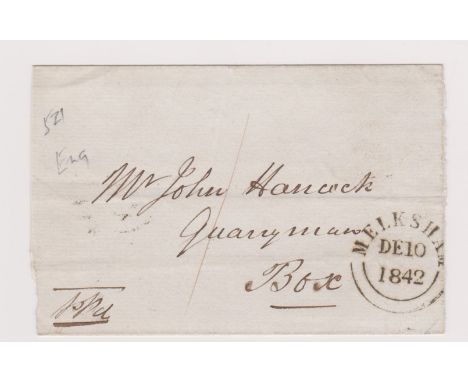 521
Eng
Mr John Hancock
Quarryman
Box
PPd
MELKSHAM
DE 10
1842